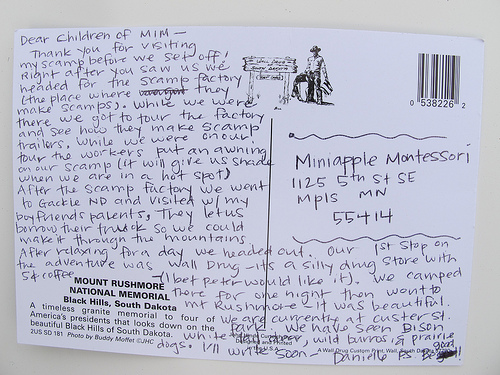 Dear Children of MIM—
Thank you for visiting
my scamp before we set off!
Right after you saw us we
headed for the scamp factory
(the place where they
make scamps). While we were
there we got to tour the factory
and see how they make scamp
trailers. While we were on our
tour the workers put an awning
on our scamp (it will give us shade
when we are in a hot spot)
After the scamp factory we went
to Gackle ND and visited w/ my
boyfriends parents, They let us
borrow their truck so we could
make it through the mountains.
After relaxing for a day we headed out. Our 1st stop on
the adventure was Wall Drug - its a silly drug store with
5¢ coffee (I bet peter would like it). We camped
there for one night then went to
mt Rushmore - it was beautiful.
We are currently at custer st.
Park. We have seen Bison
white tail deer, wild burros, & prairie
dogs. I'll write soon - Danielle
0 538226 2
Miniapple Montessori
1125 5th St SE
Mpls MN
55414
MOUNT RUSHMORE
NATIONAL MEMORIAL
Black Hills, South Dakota
A timeless granite memorial to four of
America's presidents that looks down on the
beautiful Black Hills of South Dakota.
2US SD 181 Photo by Buddy Moffet ©UHC
A Wall Drug Custom Print, Wall, South Dakota